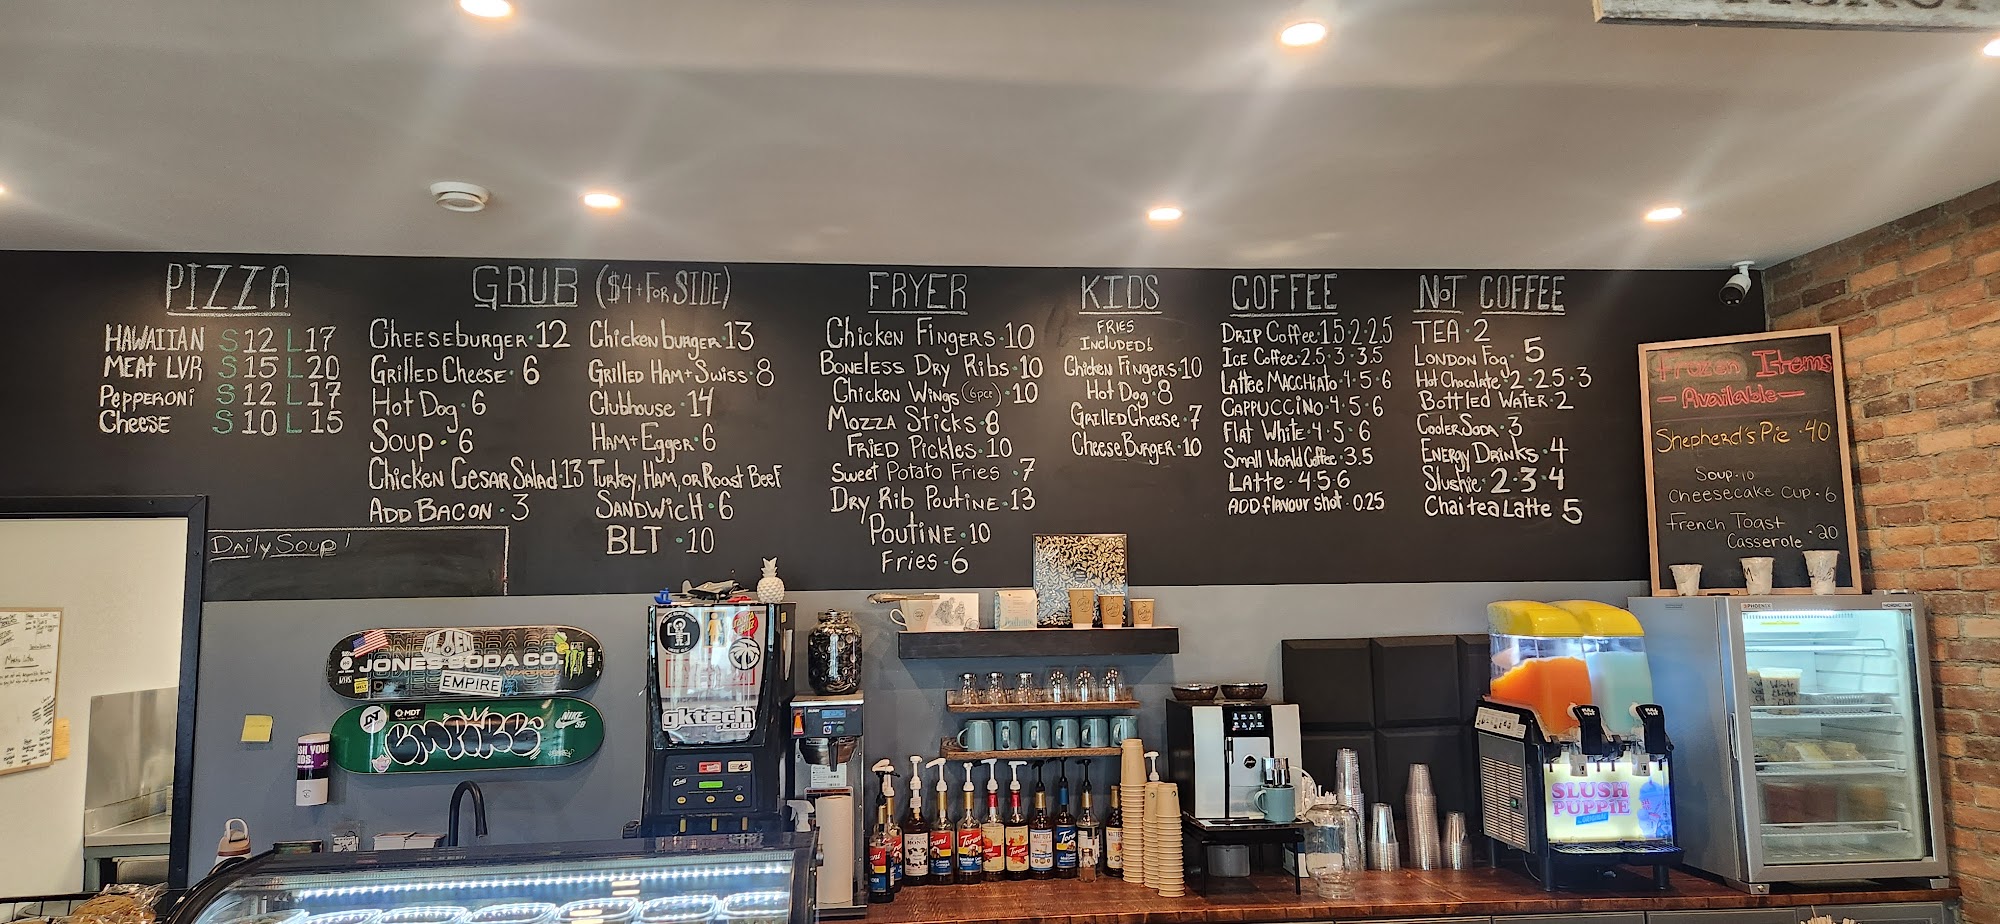 PIZZA
HAWAIIAN S 12 L 17
MEAt LVR S 15 L 20
PEPPERONi S 12 L 17
CHEESE S 10 L 15
GRUB ($4+ FOR SIDE)
Cheeseburger · 12
GRilled Cheese · 6
Hot Dog · 6
Soup · 6
Chicken Cesar Salad · 13
Add Bacon · 3
Chickenburger · 13
GRilled Ham + Swiss · 8
Clubhouse · 14
Ham + Egger · 6
Turkey, Ham, or Roast Beef
Sandwich · 6
BLT · 10
FRYER
Chicken Fingers · 10
Boneless Dry Ribs · 10
Chicken Wings (6pce) · 10
Mozza Sticks · 8
Fried Pickles · 10
Sweet Potato Fries · 7
Dry Rib Poutine · 13
Poutine · 10
Fries · 6
KIDS
FRIES
INCLUDED!
Chicken Fingers · 10
Hot Dog · 8
GRilled Cheese · 7
Cheese Burger · 10
COFFEE
DRIP Coffee · 1.5 · 2 · 2.5
Ice Coffee · 2.5 · 3 · 3.5
Lattee Macchiato · 4 · 5 · 6
CAPPUCCINO · 4 · 5 · 6
Flat White · 4 · 5 · 6
Small World Coffee · 3.5
LAtte · 4 · 5 · 6
ADD flavour shot · 0.25
NOT COFFEE
TEA · 2
London Fog · 5
Hot Chocolate · 2 · 2.5 · 3
Bottled Water · 2
Cooler Soda · 3
Energy Drinks · 4
Slushie · 2 · 3 · 4
Chai tea Latte 5
Frozen Items
— Available —
Shepherd's Pie · 40
Soup · 10
Cheesecake Cup · 6
French Toast
Casserole · 20
Daily Soup!
JONES SODA CO.
EMPIRE
MDT
NIKE
SB
EMPIRE
gktech
.com
Torani
Torani
Torani
SLUSH
PUPPiE
PHOENIX